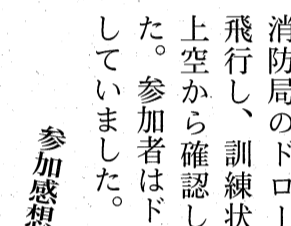 消防局のドロー
飛行し、訓練状
上空から確認し
た。参加者はド
していました。
参加感想